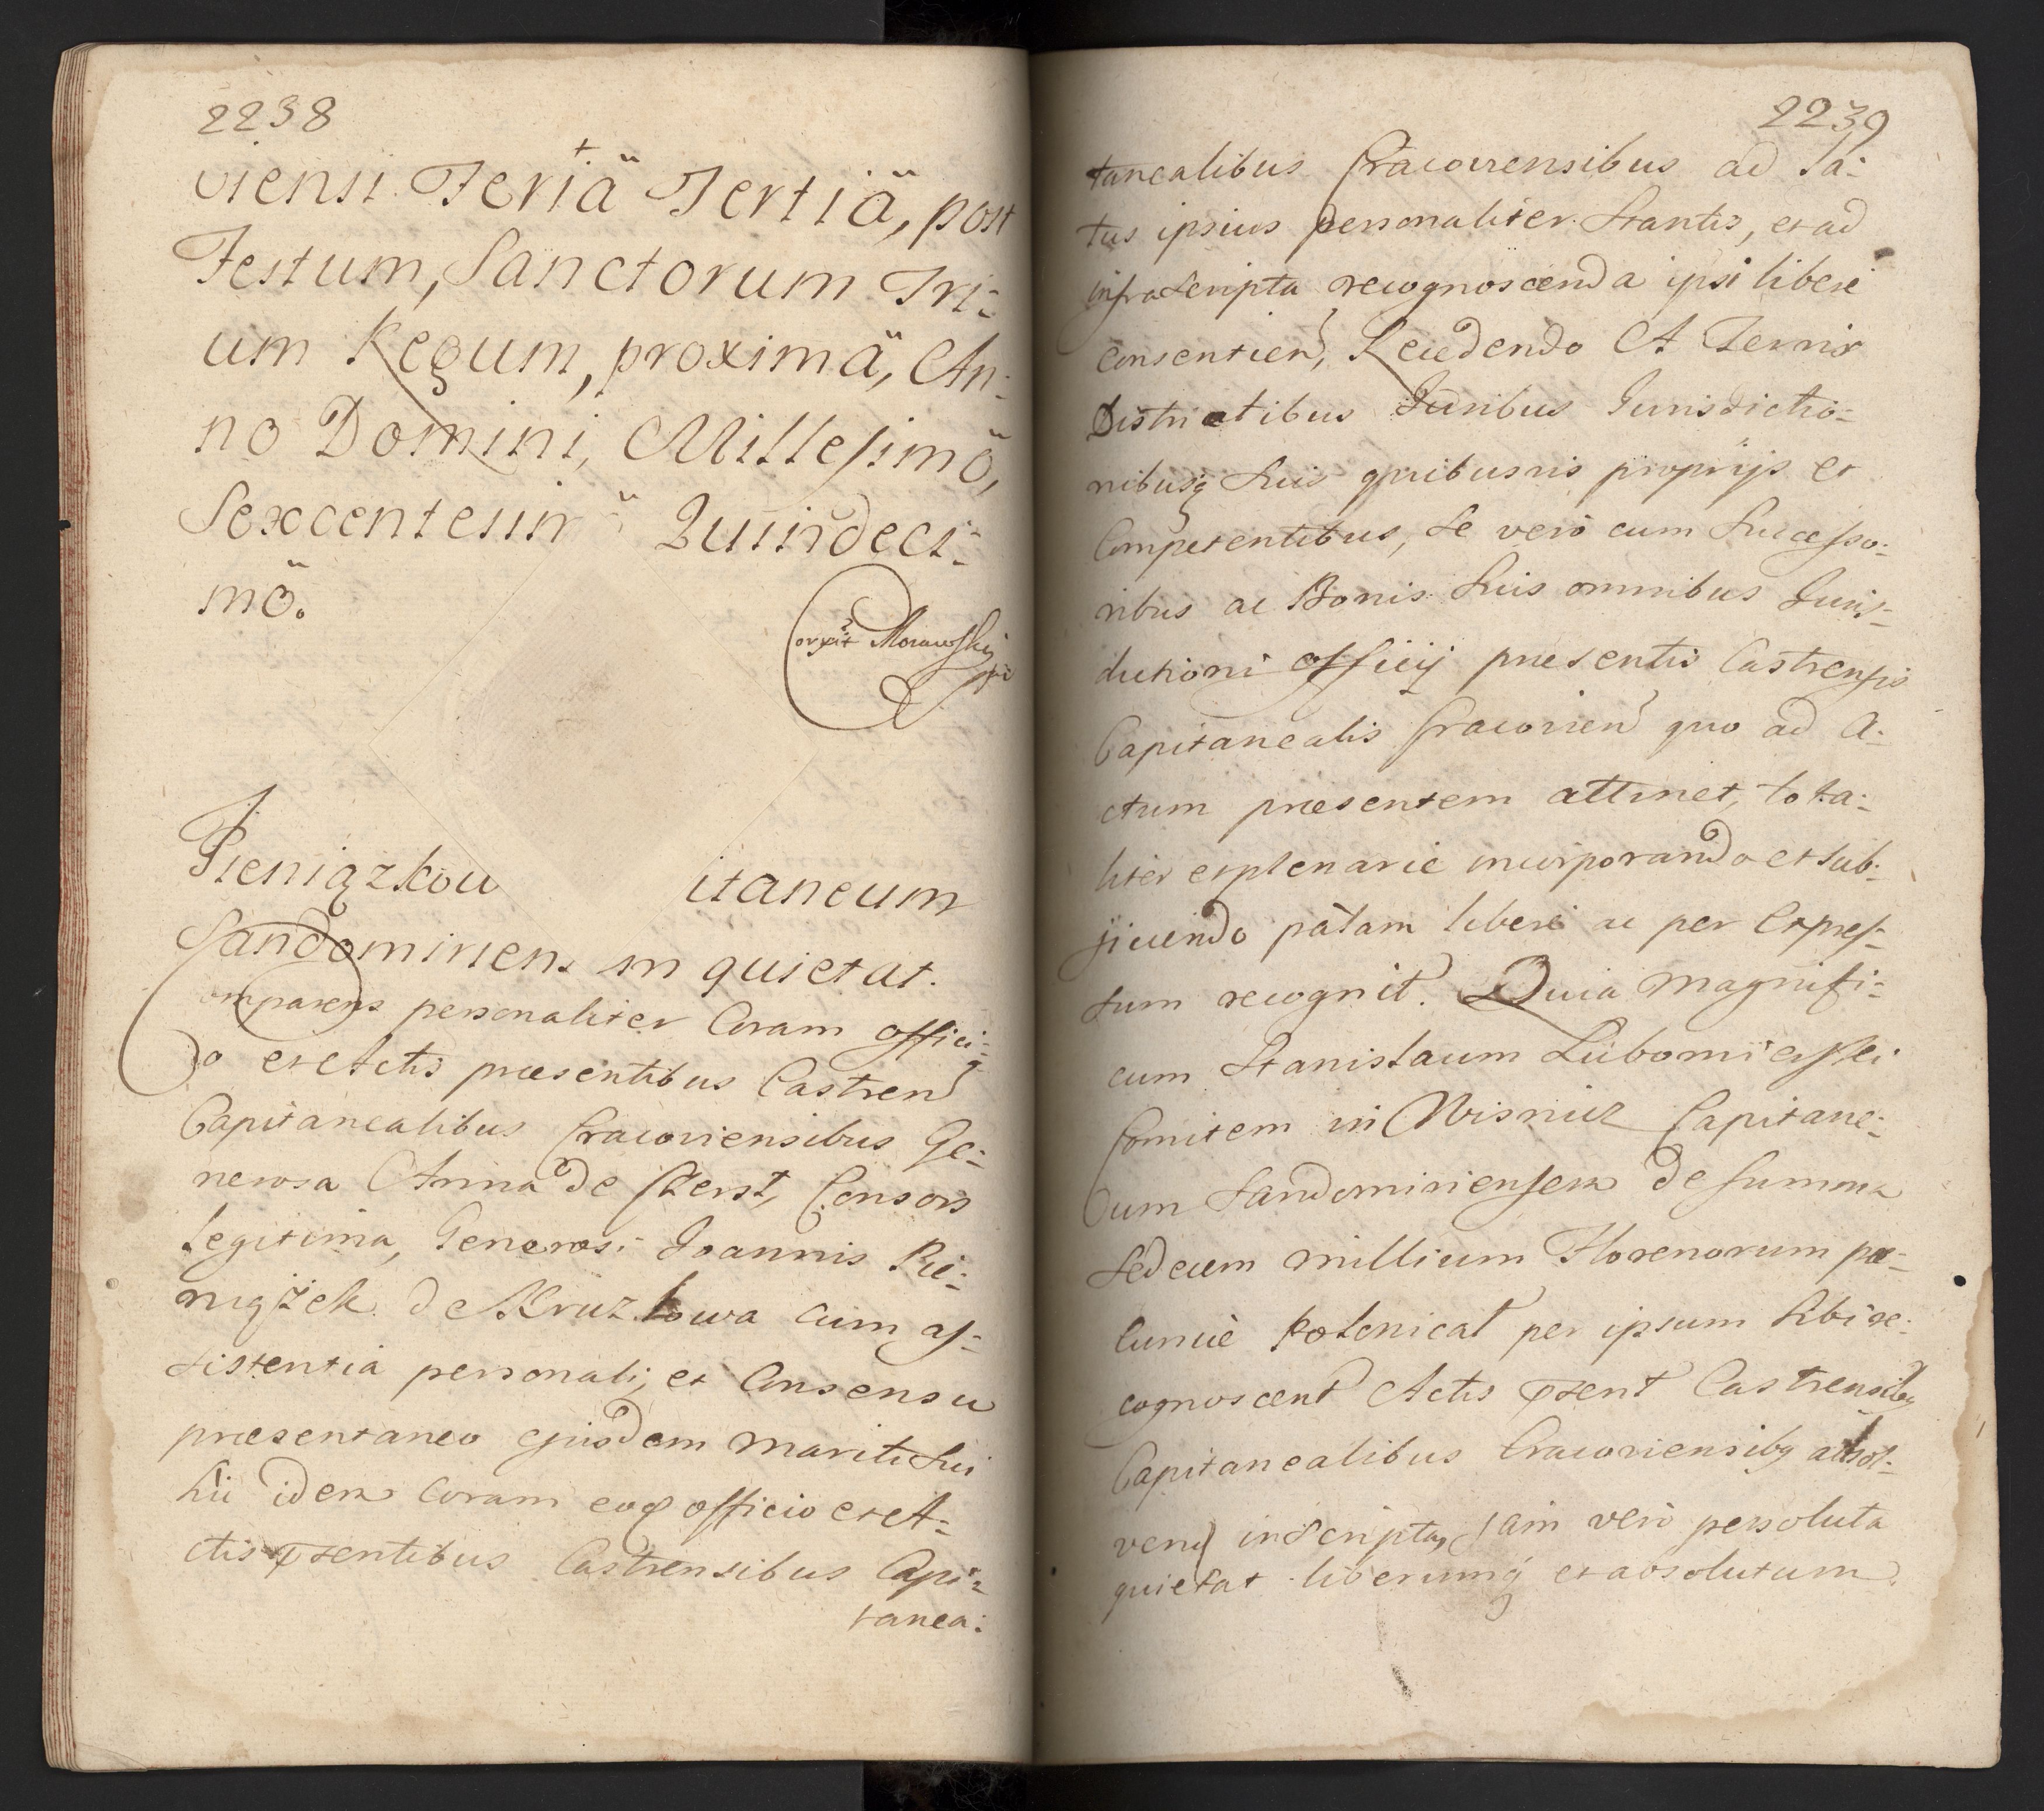 2238
viensi Feriä Tertiä, post
Festum, Sanctorum Tri:
um Regum, proximä, An:
no Domini, Millesimö,
Sexcentesim Quindeci:
mö.
Corxit Morawskj
Pieniązkow itaneum
Sandomirien. m quietat.
Comparens personaliter Coram offici:
o et Actis præsentibus Castren
Capitanealibus Cracoviensibus Ge:
nerosa Anna de Szerst, Consors
legitima, Generosi Joannis Pie:
niążek de Kruzlowa cum as:
sistentia personali, et Consensu
præsentaneo ejusdem mariti sui
sui idem coram eoq officio et A:
ctis pntentibus Castrensibus Capi:
tanea:
2239
tanealibus Cracoviensibus ad La:
tus ipsius personaliter Stantis, et ad
infrascripta recognoscenda ipsi libere
consentien, Recedendo A Terris
Districtibus Juribus Jurisdictio:
nibusq suis quibusvis proprijs et
Competentibus, se vero cum Successo:
ribus ac Bonis suis omnibus Juris:
dictioni officij præsentis Castrensis
Capitanealis Cracovien quo ad A:
ctum præsentem attinet, tota:
liter explenarie incorporando et sub:
jiciendo palam libere ac per expres:
sum recognit. Quia Magnifi:
cum Stanislaum Lubomierski
Comitem in Wisnicz Capitane:
um Sandomiriensem de summa
sedecem millium Florenorum pe:
cuniæ Polonical per ipsum sibi re:
cognoscent Actis pntent Castrensibq
Capitanealibus Cracoviensibq absol:
vend inscripta, jam vero persoluta
quietat liberumq et absolutum.